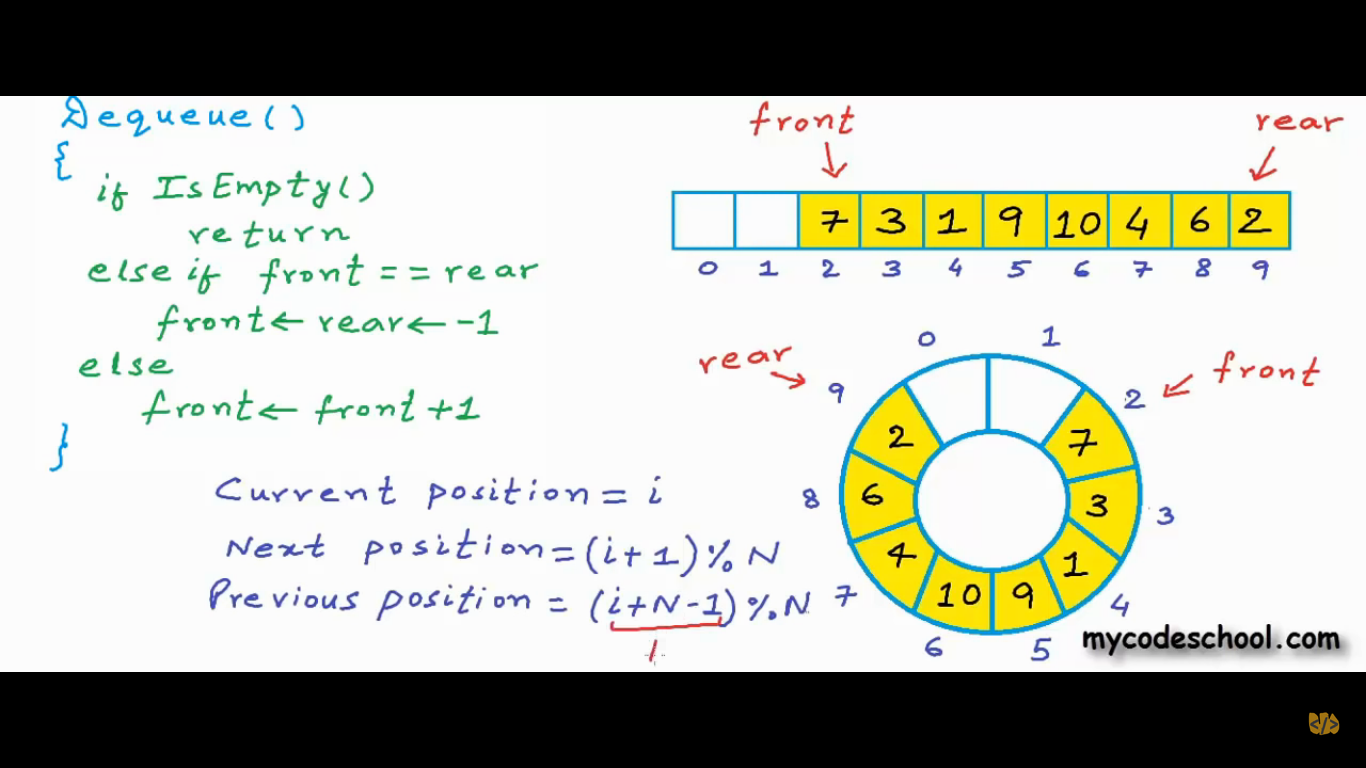 Dequeue()
{
if IsEmpty()
return
else if front == rear
front ← rear ← -1
else
front ← front + 1
}
Current position = i
Next position = (i+1) % N
Previous position = (i+N-1) % N
front
rear
7 3 1 9 10 4 6 2
0 1 2 3 4 5 6 7 8 9
rear
front
0 1
9 2
2 7
8 6 3 3
4 1
7 10 9 4
6 5
mycodeschool.com